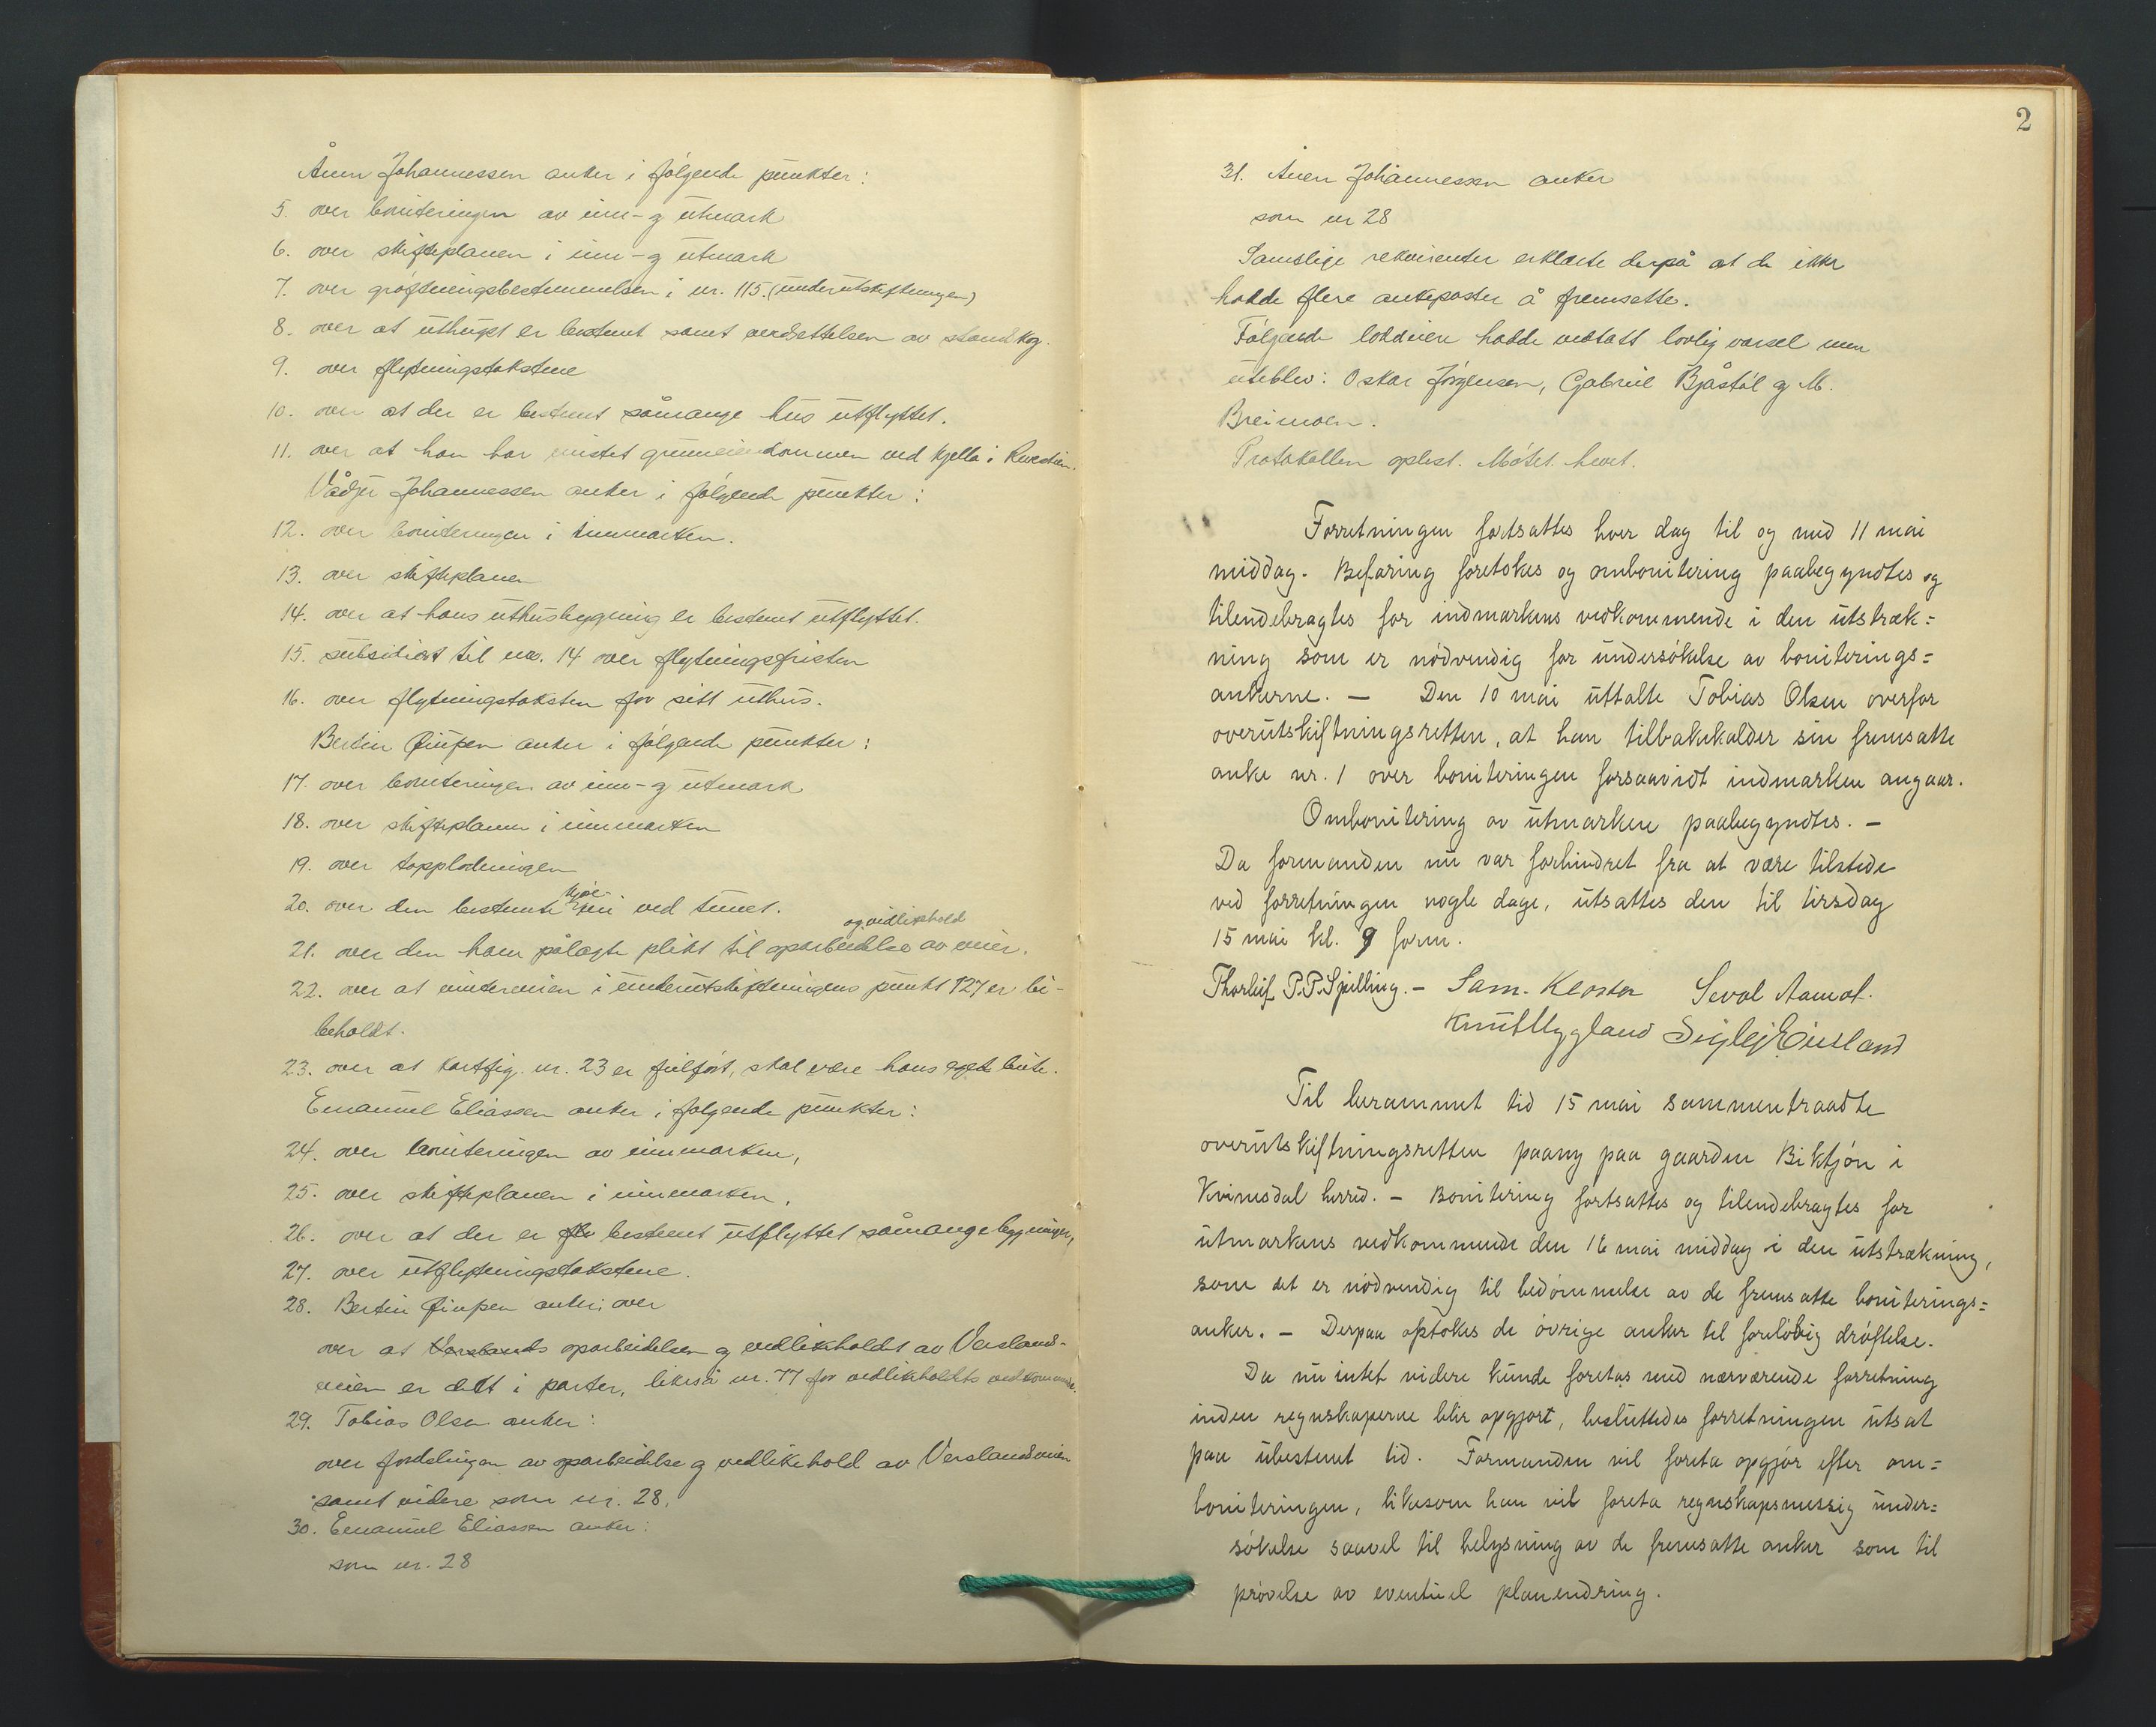 Ånen Johannessen anker i følgende punkter:
5. over boniteringen av inn- og utmark
6. over skifteplanen i inn- og utmark
7. over grøftningsbestemmelsen i nr. 115 (underutskiftningen)
8. over at uthugst er bestemt samt verdsettelsen av standskog.
9. over flytningstakstene
10. over at der er bestemt såmange hus utflyttet.
11. over at han har mistet grunneiendommen ved kjella i
Vådju Johannessen anker i følgende punkter:
12. over boniteringen i innmarken.
13. over skifteplanen
14. over at hans uthusbygning er bestemt utflyttet.
15. subsidiært til nr. 14 over flytningsfristen
16. over flytningstaksten for sitt uthus.
Bertin anker i følgende punkter:
17. over boniteringen av inn- og utmark
18. over skifteplanen i innmarken
19. over topplodningen
20. over den bestemte kjøre- vei ved tunet.
og vidlikehold
21. over den ham pålagte plikt til oparbeidelse av veier.
22. over at vinterveien i underutskiftningens punkt 127 er bi-
beholdt.
23. over at kartfig. nr. 23 er feilført, skal være hans eget beite.
Emanuel Eliassen anker i følgende punkter:
24. over boniteringen av innmarken,
25. over skifteplanen i innmarken,
26. over at der er fle bestemt utflyttet såmange bygninger,
27. over utflytningstakstene.
28. Bertin anker: over
over at Verslands oparbeidelsen og vedlikeholdt av Verslands-
veien er delt i parter, likeså nr. 77 for vedlikeholdts vedkommende.
29. Tobias Olsen anker:
over fordelingen av oparbeidelse og vedlikehold av Verslandsveien
samt videre som nr. 28.
30. Emanuel Eliassen anker:
som nr. 28
2
31. Ånen Johannessen anker
som nr 28
Samtlige rekvirenter erklærte derpå at de ikke
hadde flere ankeposter å fremsette.
Følgende loddeiere hadde vedtatt lovlig varsel men
uteblev: Oskar Jørgensen, Gabriel Bjåstøl og M.
Breimoen.
Protokollen oplest. Møtet hevet.
Forretningen fortsattes hver dag til og med 11 mai
middag. Befaring foretokes og ombonitering paabegyndtes og
tilendebragtes for indmarkens vedkommende i den utstræk=
ning som er nødvendig for undersøkelse av boniterings=
ankerne. — Den 10 mai uttalte Tobias Olsen overfor
overutskiftningsretten, at han tilbakekalder sin fremsatte
anke nr. 1 over boniteringen forsaavidt indmarken angaar.
Ombonitering av utmarken paabegyndtes. —
Da formanden nu var forhindret fra at være tilstede
ved forretningen nogle dage, utsattes den til tirsdag
15 mai kl. 9 form.
Thorleif P.P. Spilling. — Sam. Kloster Seval Aamot.
Knut Mygland Sigleif Eiesland
Til berammet tid 15 mai sammentraadte
overutskiftningsretten paany paa gaarden Biktjøn i
Kvinesdal herred. — Bonitering fortsattes og tilendebragtes for
utmarkens vedkommende den 16 mai middag i den utstrækning,
som det er nødvendig til bedømmelse av de fremsatte boniterings=
anker. — Derpaa optokes de øvrige anker til foreløbig drøftelse.
Da nu intet videre kunde foretas med nærværende forretning
inden regnskaperne blir opgjort, besluttedes forretningen utsat
paa ubestemt tid. Formanden vil foreta opgjør efter om=
boniteringen, likesom han vil foreta regnskapsmessig under=
søkelse saavel til belysning av de fremsatte anker som til
prøvelse av eventuel planendring.